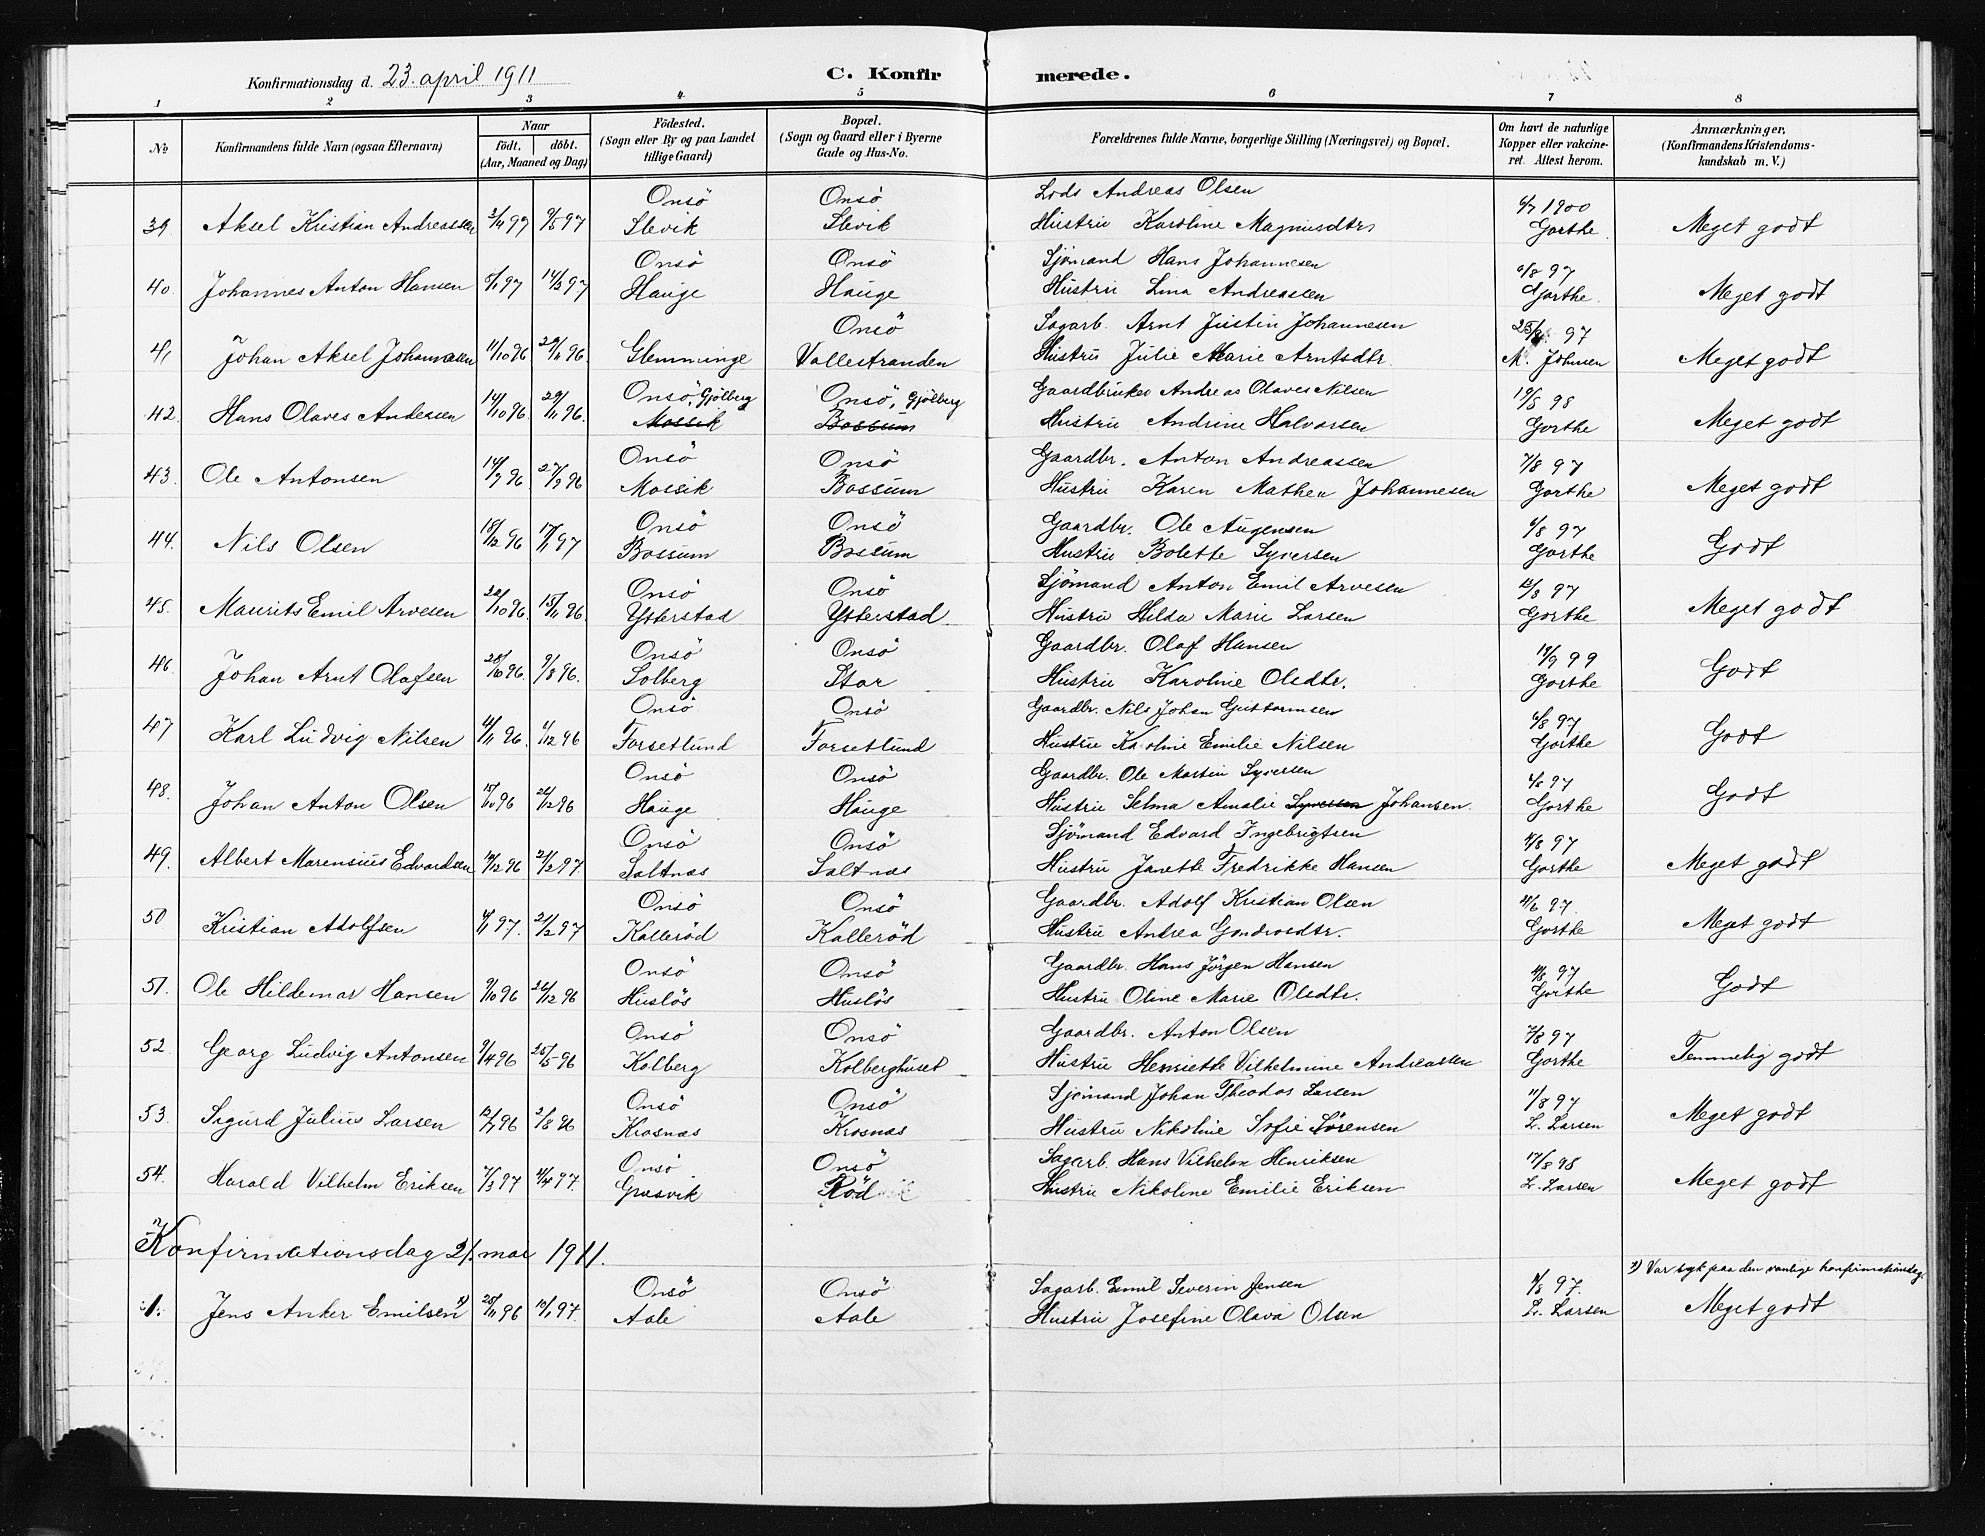 Konfirmationsdag d. 23. april 1911
C. Konfirmerede.
1 2 3 4 5 6 7 8
No
Konfirmandens fulde Navn (ogsaa Efternavn)
Naar
födt. döbt.
(Aar, Maaned og Dag)
Födested.
(Sogn eller By og paa Landet
tillige Gaard)
Bopæl.
(Sogn og Gaard eller i Byerne
Gade og Hus-No.
Forældrenes fulde Navne, borgerlige Stilling (Næringsvei) og Bopæl.
Om havt de naturlige
Kopper eller vakcine-
ret. Attest herom.
Anmærkninger.
(Konfirmandens Kristendoms-
kundskab m. V.)
Onsö Onsö Lods Andreas Olsen 1900
39. Aksel Kristian Andreassen 9/5 97 Slevik Slevik Hustru Karoline Magnusdtr. Gorthe. Meget godt
Onsö Onsö Sjömand Hans Johannesen 97
40. Johannes Anton Hansen 97 14/3 97 Hauge Hauge Hustru Lina Andreassen Gorthe. Meget godt
Onsö Sagarb. Arnt Justin Johannesen 97
41 Johan Aksel Johannesen 11/10 96 29/11 96. Glemminge Vallestranden Hustru Julie Marie Arntsdtr. M. Johnsen Meget godt
Onsö, Gjölberg Onsö, Gjölberg Gaardbruker Andreas Olaves Nilsen 19/5 98
42. Hans Olaves Andersen 14/10 96. 29/11 96. Mossik Bossum Hustru Andrine Halvorsen Gorthe Meget godt
Onsö Onsö Gaardbr. Anton Andreassen 7/8 97
43. Ole Antonsen 14/7 96. 27/9 96 Mossik Bossum Hustru Karen Mathea Johannesen Gorthe Meget godt
Onsö Onsö Gaardbr. Ole Augensen 6/8 97
44. Nils Olsen 18/12 96 17/1 97 Bossum Bossum Hustru Bolette Syversen Gorthe Godt
Onsö Onsö Sjömand Anton Emil Arvesen 12/8 97
45. Maurits Emil Arvesen 20/10 96. 15/11 96. Ytterstad Ytterstad Hustru Hilda Marie Larsen Gorthe Meget godt
Onsö Onsö Gaardbr. Olaf Hansen 19/9 99
46. Johan Arnt Olafsen 96. 9/8 96. Solberg Stor Hustru Karoline Olsdtr. Gorthe Godt
Onsö Onsö Gaardbr. Nils Johan Guttormsen 6/8 97
47 Karl Ludvig Nilsen 4/11 96. 6/12 96 Torsetlund Torsetlund Hustru Karoline Emilie Nilsen Gorthe Godt
Onsö Onsö Gaardbr. Ole Martin Syversen 6/8 97
48. Johan Anton Olsen 15/10 96 26/12 96 Hauge Hauge Hustru Selma Amalie Syversen Johansen. Gorthe Godt
Onsö Onsö Sjömand Edvard Ingebrigtsen 97
49. Albert Marensius Edvardsen 12 96 21/2 97. Saltnæs Saltnæs Hustru Janette Fredrikke Hansen Gorthe Meget godt
Onsö Onsö Gaardbr. Adolf Kristian Olsen 97.
50 Kristian Adolfsen 97. 21/2 97 Kallerød Kallerød Hustru Andrea Gondrosdtr. Gorthe Meget godt
Onsö Onsö Gaardbr. Hans Jörgen Hansen 97
51. Ole Hildemar Hansen 9/10 96 26/12 96 Huslös Huslös Hustru Oline Marie Olsdtr. Gorthe Godt
Onsö Onsö Gaardbr. Anton Olsen 7/8 97
52. Georg Ludvig Antonsen 9/4 96 25/5 96 Kolberg Kolberghuset Hustru Henriette Vilhelmine Andreassen Gorthe Temmelig godt
Onsö Onsö Sjömand Johan Theodor Larsen 11/8 97
53. Sigurd Julius Larsen 12/7 96 2/8 96 Krosnæs Krosnæs Hustru Nikoline Sofie Sörensen L. Larsen Meget godt
Onsö Onsö Sagarb. Hans Vilhelm Henriksen 17/8 98
54. Harald Vilhelm Eriksen 7/3 97 4/4 97. Græsvik Röd Hustru Nikoline Emilie Eriksen L. Larsen Meget godt
Konfirmationsdag 21. mai 1911.
1) Var syk paa den vanlige konfirmationsdag.
Onsö Onsö Sagarb. Emil Severin Jensen 97.
1. Jens Anker Emilsen 1) 25/11 96 10/1 97. Aale Aale Hustru Josefine Olava Olsen L. Larsen Meget godt